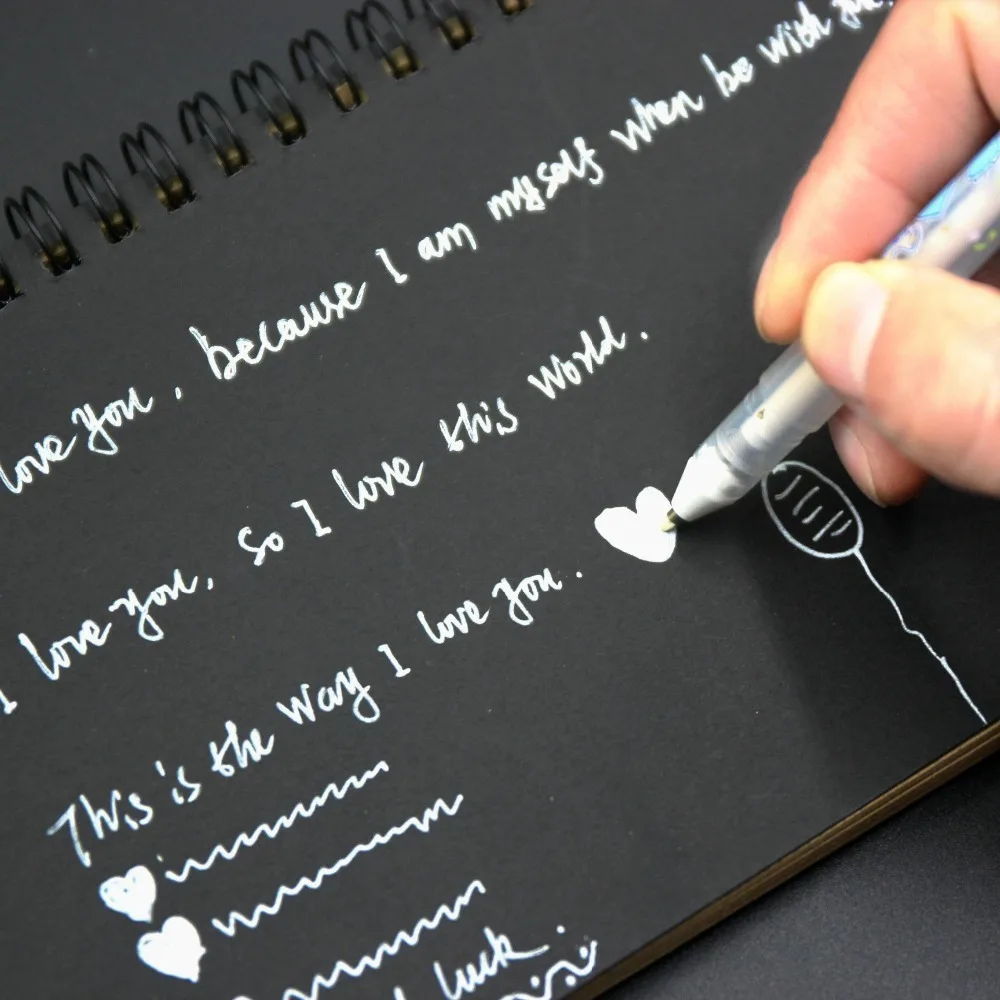 love you, because I am myself when be with you,
I love you, so I love this world.
This is the way I love you.
luck.